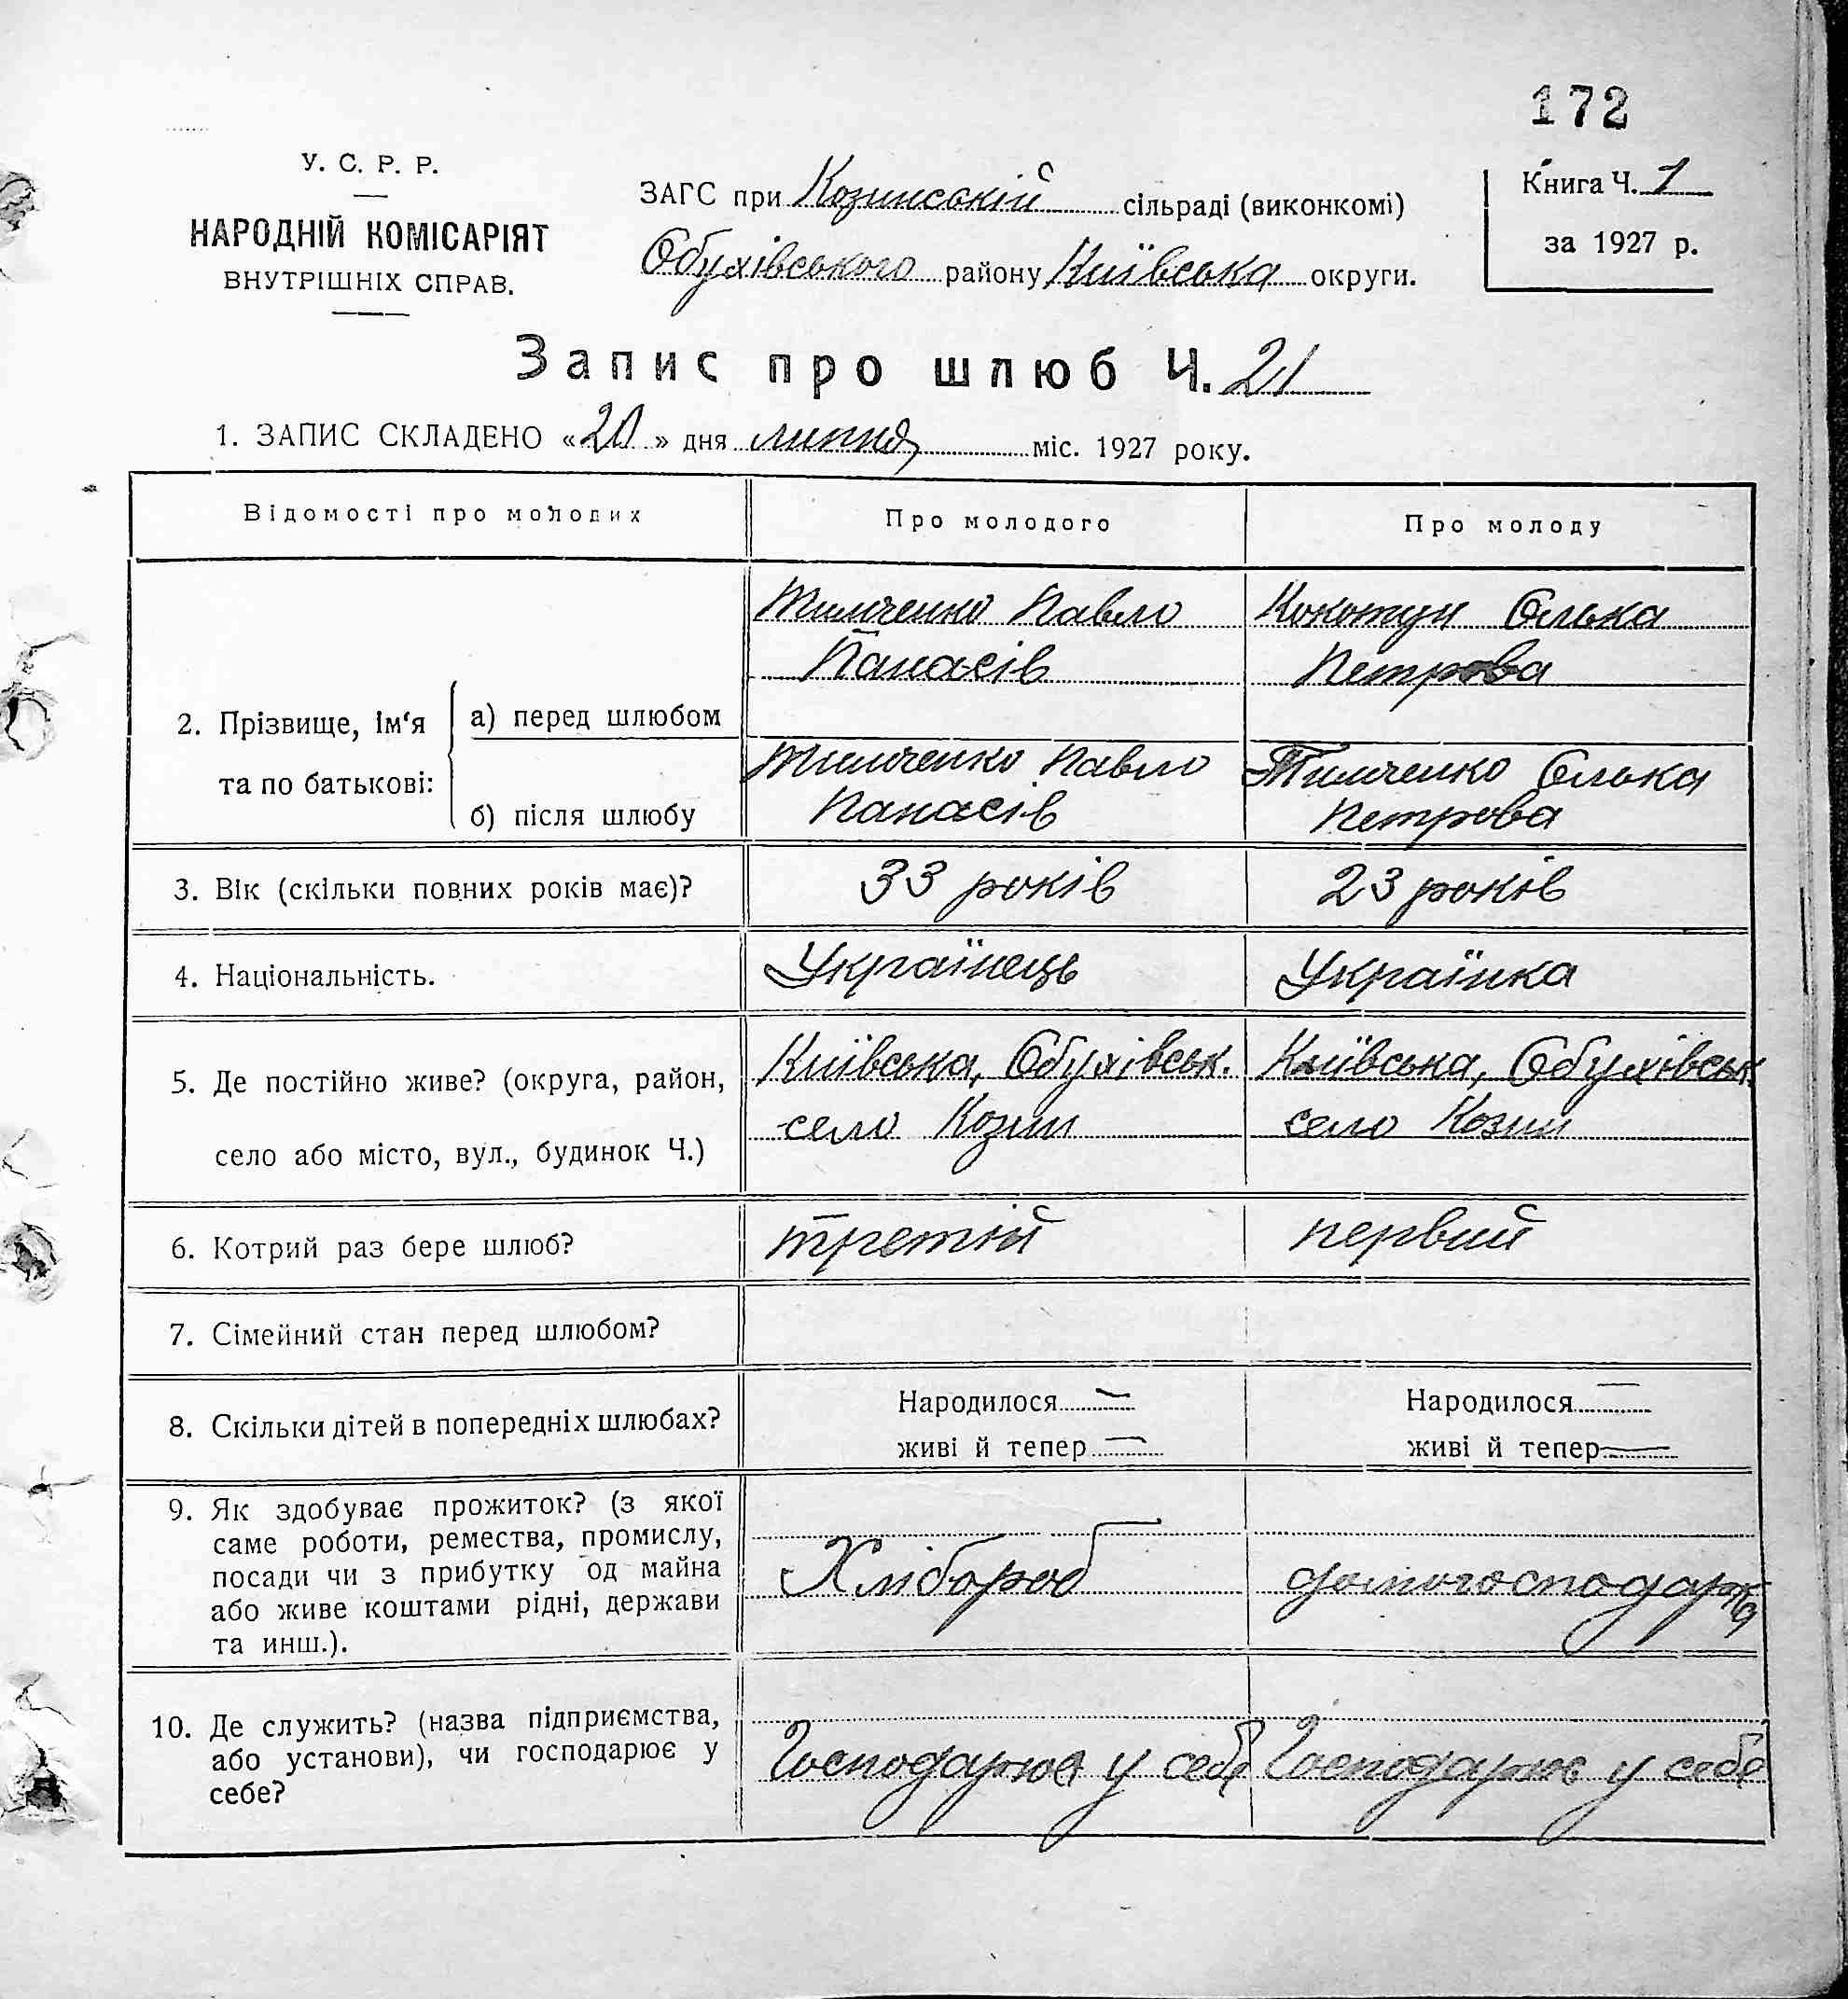 172
У. С. Р. Р.
НАРОДНІЙ КОМІСАРІЯТ
ВНУТРІШНІХ СПРАВ.
ЗАГС при Козинській сільраді (виконкомі)
Обухівського району Київська округи.
Книга Ч. 1
за 1927 р.
Запис про шлюб Ч. 21
1. ЗАПИС СКЛАДЕНО «20» дня липня міс. 1927 року.
Відомості про молодих
Про молодого
Про молоду
2. Прізвище, ім‘я
та по батькові:
а) перед шлюбом
Тимченко Павло
Панасів
Кокотун Олька
Петрова
б) після шлюбу
Тимченко Павло
Панасів
Тимченко Олька
Петрова
3. Вік (скільки повних років має)?
33 років
23 років
4. Національність.
Українець
Українка
5. Де постійно живе? (округа, район,
село або місто, вул., будинок Ч.)
Київська, Обухівськ.
село Козин
Київська, Обухівськ.
село Козин
6. Котрий раз бере шлюб?
третій
первий
7. Сімейний стан перед шлюбом?
8. Скільки дітей в попередніх шлюбах?
Народилося —
живі й тепер —
Народилося —
живі й тепер —
9. Як здобуває прожиток? (з якої
саме роботи, ремества, промислу,
посади чи з прибутку од майна
або живе коштами рідні, держави
та инш.).
Хлібороб
домогосподарка
10. Де служить? (назва підприємства,
або установи), чи господарює у
себе?
Господарює у себе
Господарює у себе